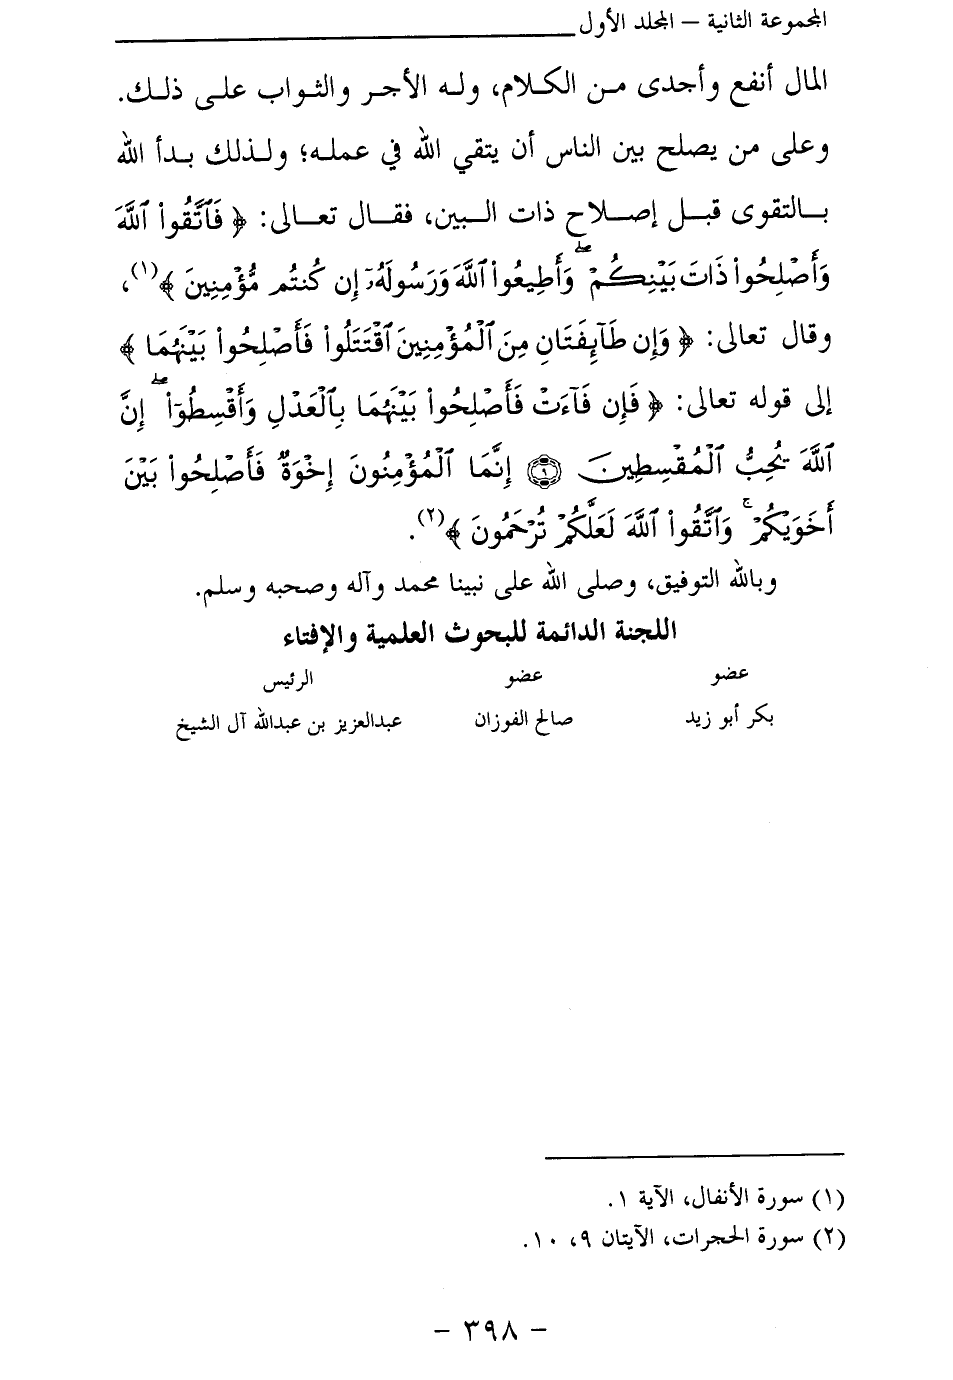 المجموعة الثانية – المجلد الأول
المال أنفع وأجدى من الكلام، وله الأجر والثواب على ذلك.
وعلى من يصلح بين الناس أن يتقي الله في عمله؛ ولذلك بدأ الله
بالتقوى قبل إصلاح ذات البين، فقال تعالى: ﴿ فَٱتَّقُوا۟ ٱللَّهَ
وَأَصْلِحُوا۟ ذَاتَ بَيْنِكُمْ ۖ وَأَطِيعُوا۟ ٱللَّهَ وَرَسُولَهُۥٓ إِن كُنتُم مُّؤْمِنِينَ ﴾(١)،
وقال تعالى: ﴿ وَإِن طَآئِفَتَانِ مِنَ ٱلْمُؤْمِنِينَ ٱقْتَتَلُوا۟ فَأَصْلِحُوا۟ بَيْنَهُمَا ﴾
إلى قوله تعالى: ﴿ فَإِن فَآءَتْ فَأَصْلِحُوا۟ بَيْنَهُمَا بِٱلْعَدْلِ وَأَقْسِطُوٓا۟ ۖ إِنَّ
ٱللَّهَ يُحِبُّ ٱلْمُقْسِطِينَ ۝٩ إِنَّمَا ٱلْمُؤْمِنُونَ إِخْوَةٌ فَأَصْلِحُوا۟ بَيْنَ
أَخَوَيْكُمْ ۚ وَٱتَّقُوا۟ ٱللَّهَ لَعَلَّكُمْ تُرْحَمُونَ ﴾(٢).
وبالله التوفيق، وصلى الله على نبينا محمد وآله وصحبه وسلم.
اللجنة الدائمة للبحوث العلمية والإفتاء
عضو عضو الرئيس
بكر أبو زيد صالح الفوزان عبدالعزيز بن عبدالله آل الشيخ
(١) سورة الأنفال، الآية ١.
(٢) سورة الحجرات، الآيتان ٩، ١٠.
– ٣٩٨ –